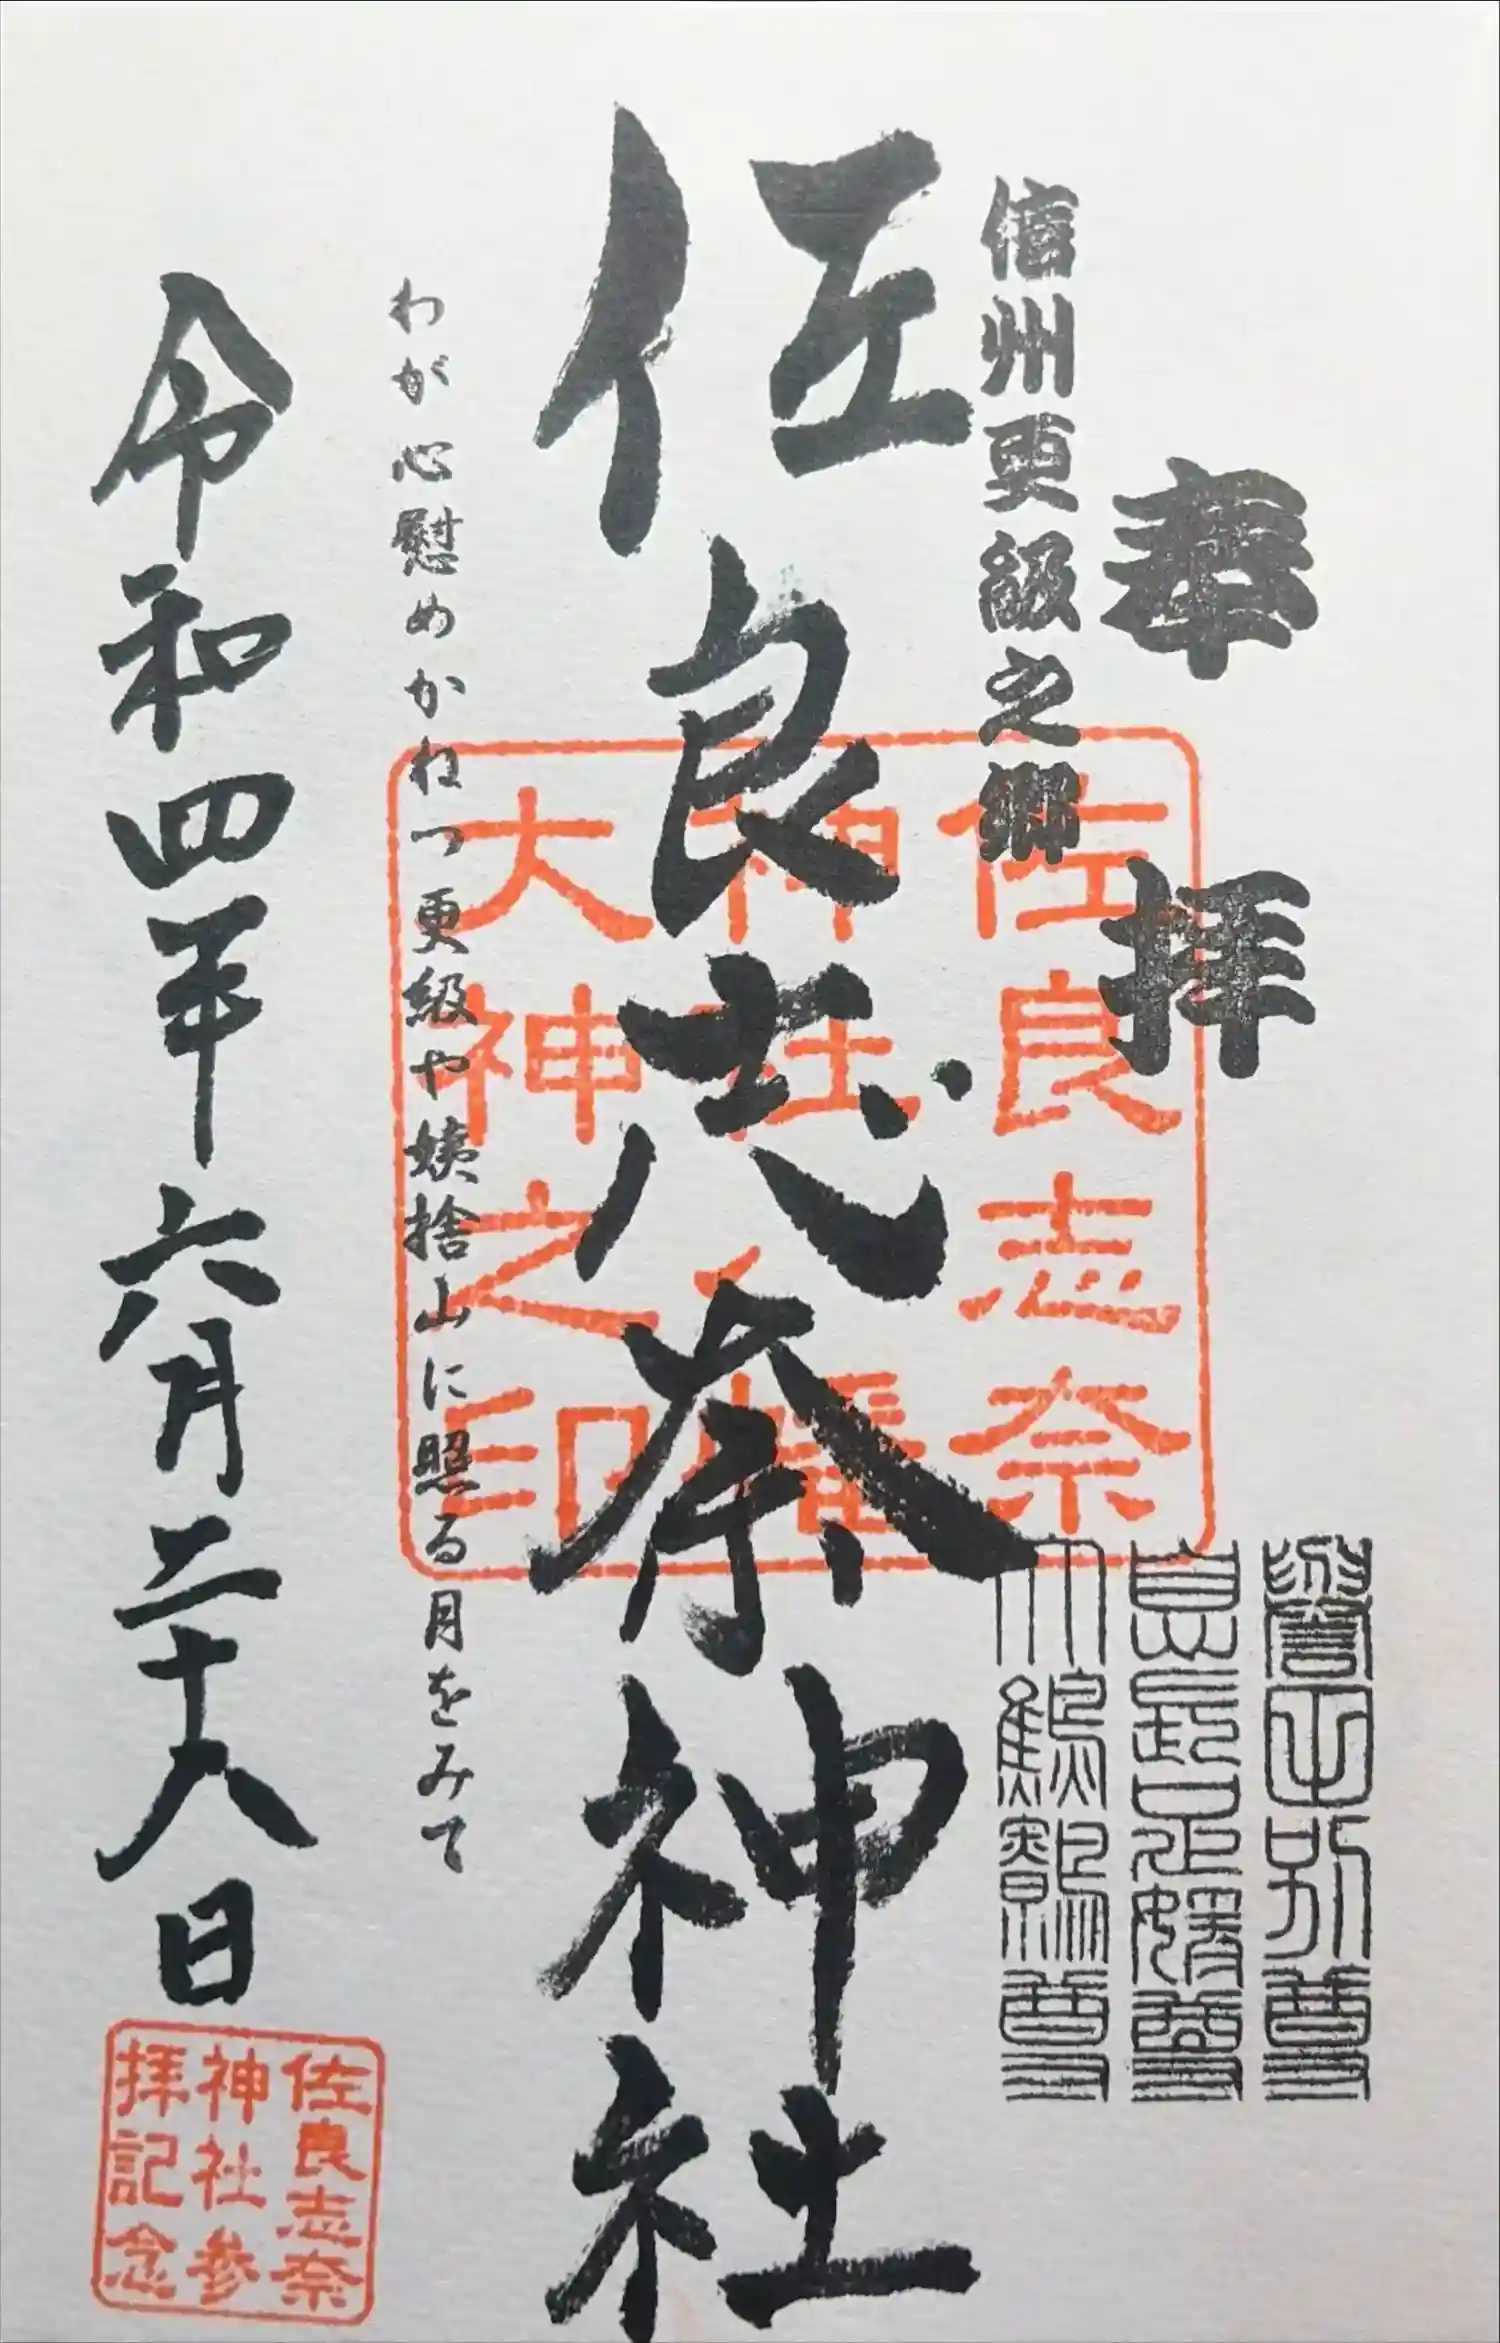 奉拝
信州更級之郷
佐良志奈神社
わが心慰めかねつ更級や姨捨山に照る月をみて
令和四年六月二十八日
佐良志奈
神社八幡
大神之印
譽田別尊
大鷦鷯尊
佐良志奈
神社参
拝記念